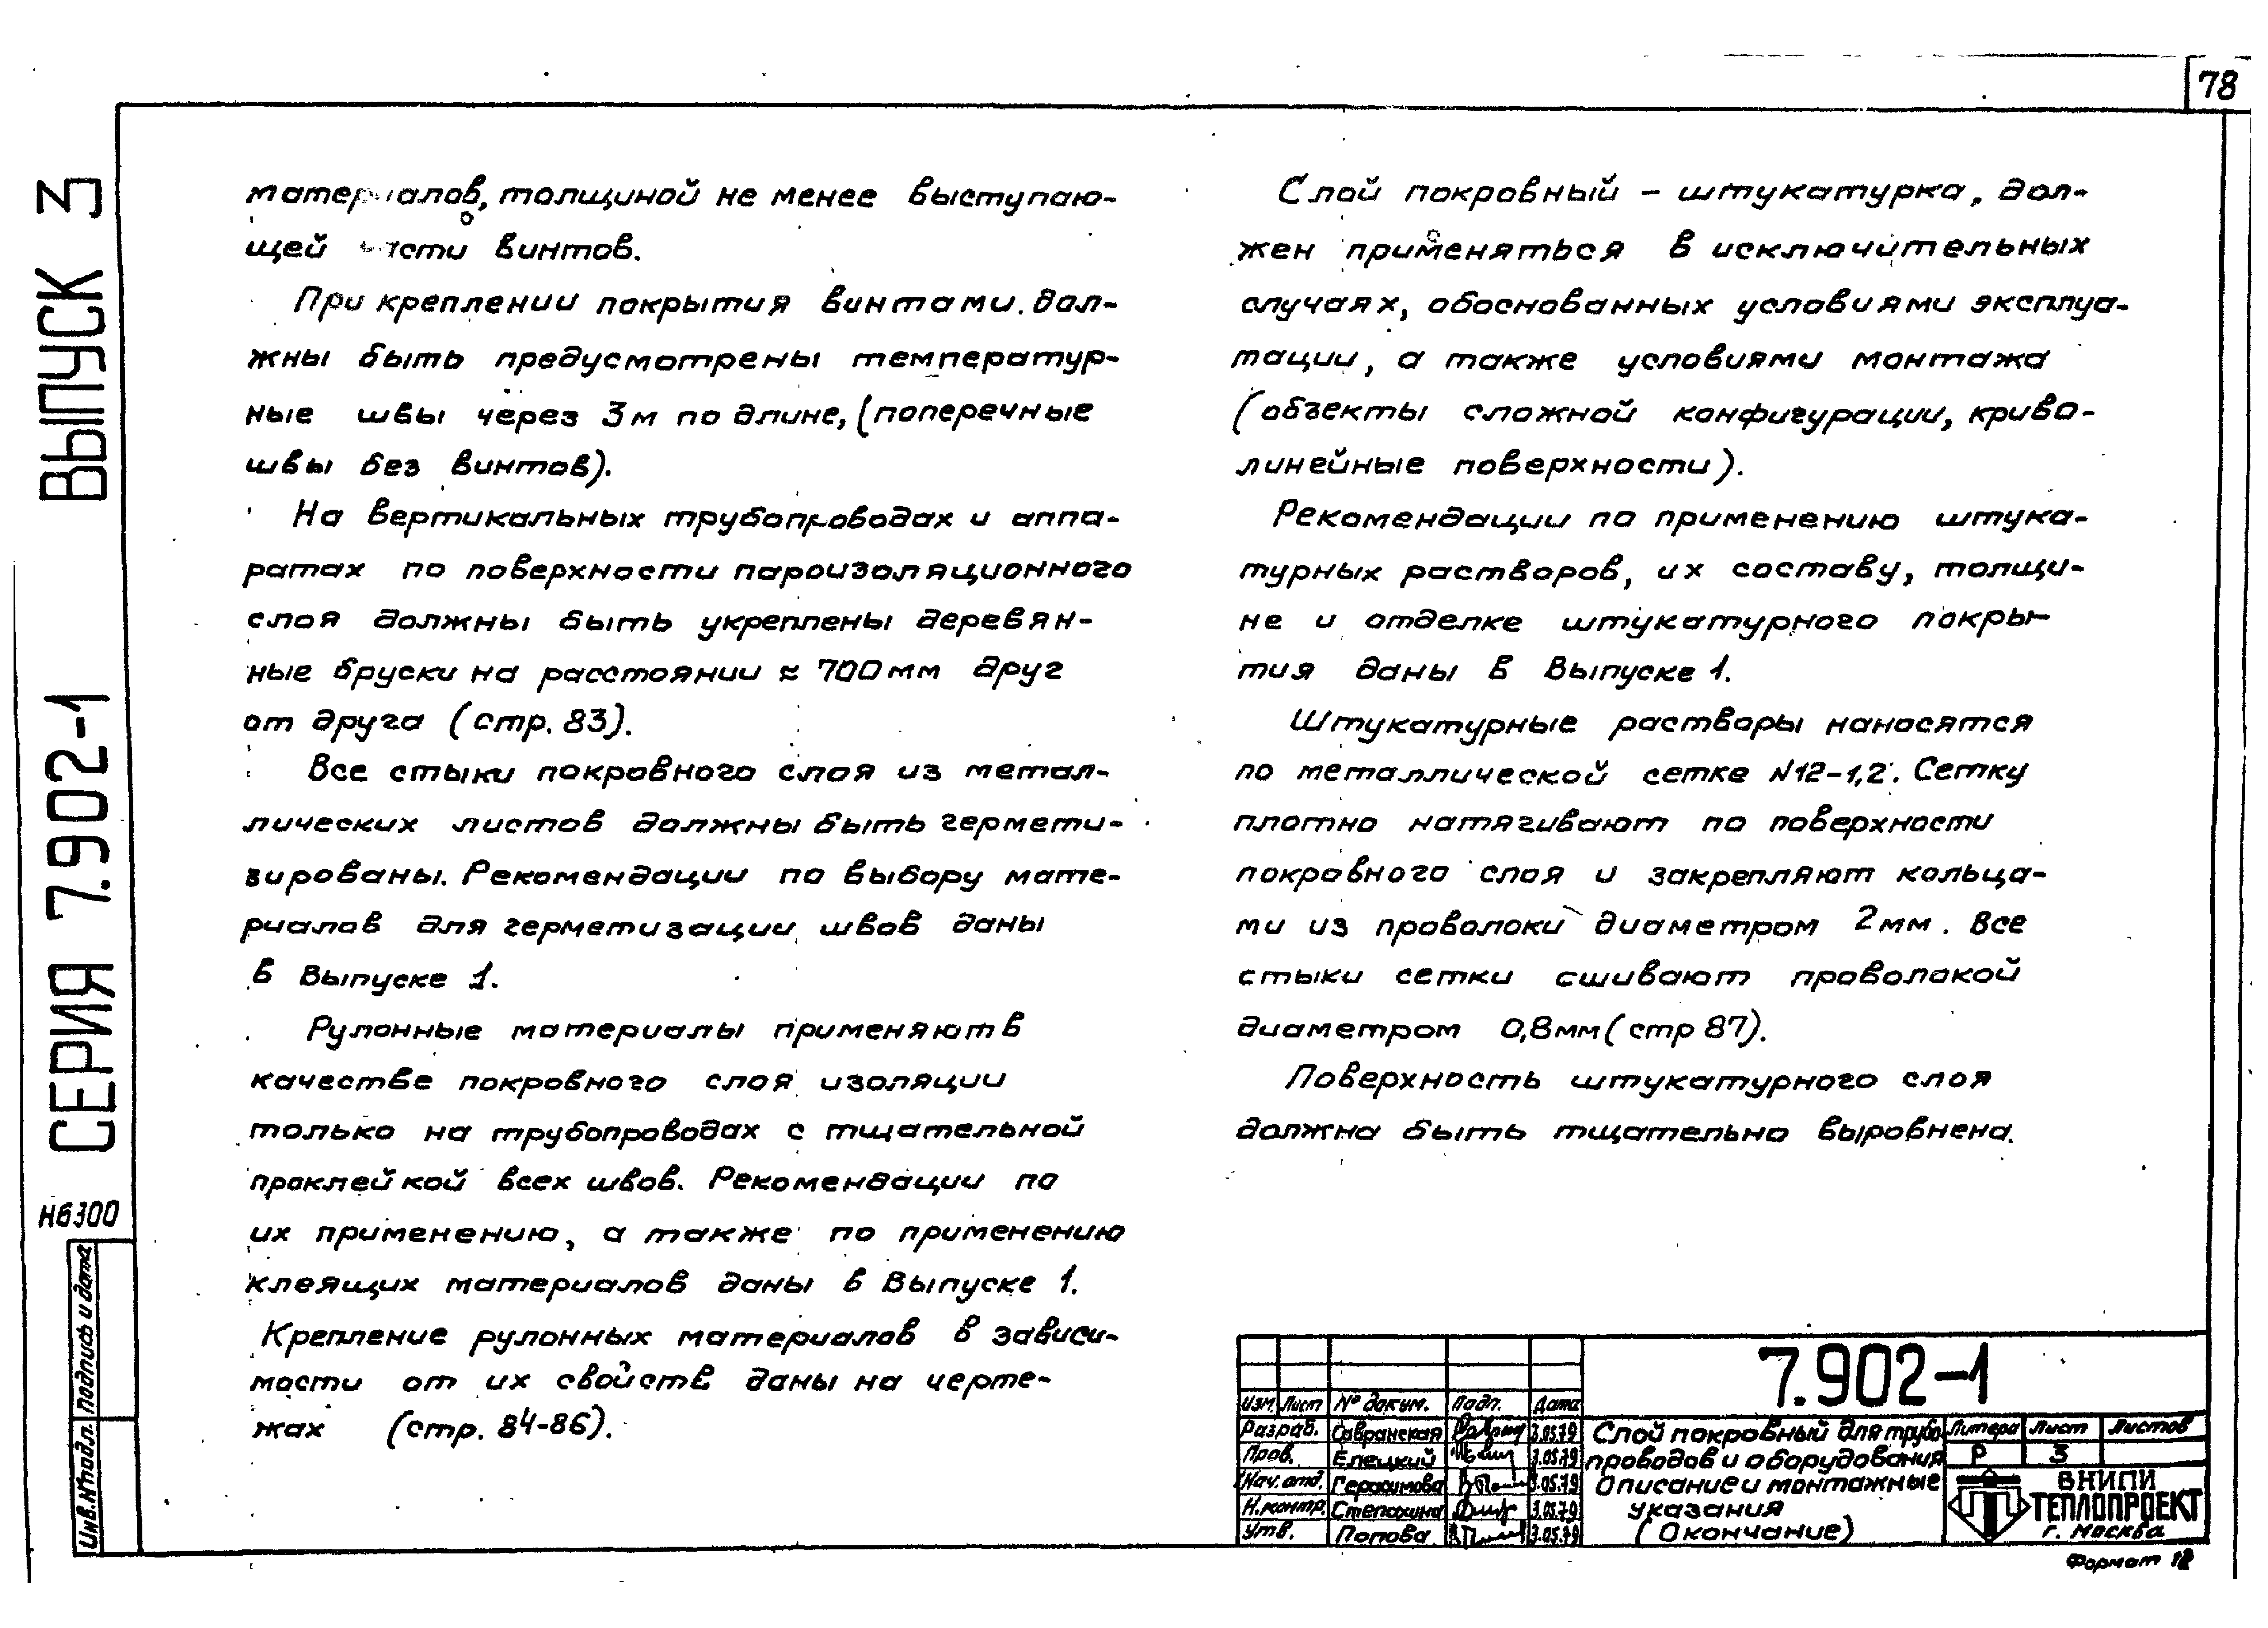 78
СЕРИЯ 7.902-1 ВЫПУСК 3
материалов, толщиной не менее выступаю-
щей части винтов.
При креплении покрытия винтами дол-
жны быть предусмотрены температур-
ные швы через 3м по длине, (поперечные
швы без винтов).
На вертикальных трубопроводах и аппа-
ратах по поверхности пароизоляционного
слоя должны быть укреплены деревян-
ные бруски на расстоянии ≈ 700мм друг
от друга (стр. 83).
Все стыки покровного слоя из метал-
лических листов должны быть гермети-
зированы. Рекомендации по выбору мате-
риалов для герметизации швов даны
в Выпуске 1.
Рулонные материалы применяют в
качестве покровного слоя изоляции
только на трубопроводах с тщательной
проклейкой всех швов. Рекомендации по
их применению, а также по применению
клеящих материалов даны в Выпуске 1.
Крепление рулонных материалов в зависи-
мости от их свойств даны на черте-
жах (стр. 84-86).
Слой покровный – штукатурка, дол-
жен применяться в исключительных
случаях, обоснованных условиями эксплуа-
тации, а также условиями монтажа
(объекты сложной конфигурации, криво-
линейные поверхности).
Рекомендации по применению штука-
турных растворов, их составу, толщи-
не и отделке штукатурного покры-
тия даны в Выпуске 1.
Штукатурные растворы наносятся
по металлической сетке N12-1,2. Сетку
плотно натягивают по поверхности
покровного слоя и закрепляют кольца-
ми из проволоки диаметром 2мм. Все
стыки сетки сшивают проволокой
диаметром 0,8мм (стр 87).
Поверхность штукатурного слоя
должна быть тщательно выровнена.
Н6300
Подпись и дата
Инв. № подл.
7.902-1
Изм. Лист № докум. Подп. Дата
Разраб. Савранская 3.05.79
Пров. Елецкий 3.05.79
Нач. отд. Герасимова 3.05.79
Н. контр. Степошина 3.05.79
Утв. Попова 3.05.79
Слой покровный для трубо
проводов и оборудования
Описание и монтажные
указания
(Окончание)
Литера Лист Листов
Р 3
ВНИПИ
ТЕПЛОПРОЕКТ
г. Москва
Формат 12